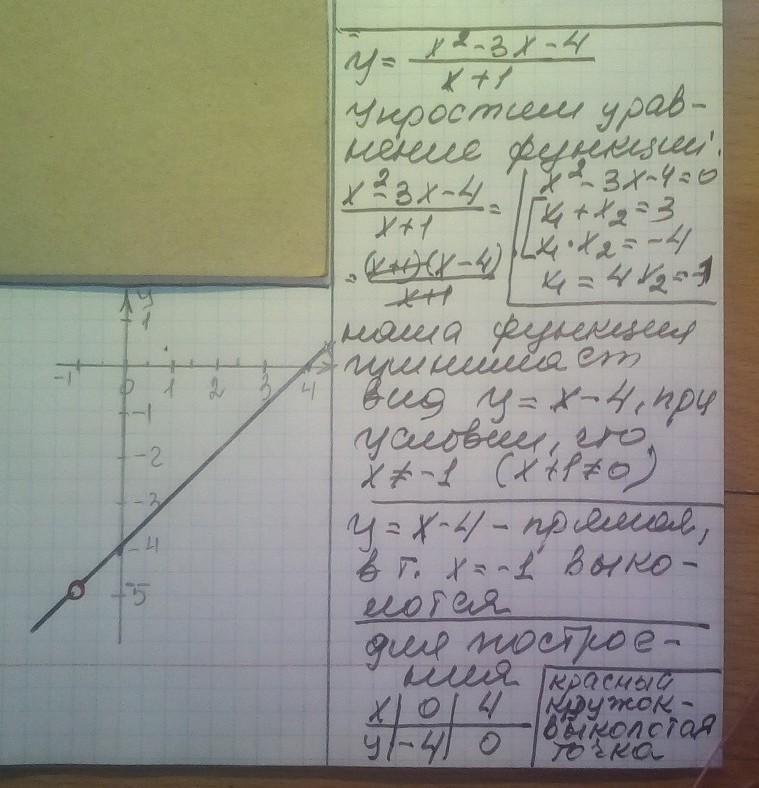 y = x² - 3x - 4 / x + 1
Упростим урав-
нение функции:
x² - 3x - 4 / x + 1 =
= (x+1)(x-4) / x+1
x² - 3x - 4 = 0
x₁ + x₂ = 3
x₁ · x₂ = -4
x₁ = 4 x₂ = -1
наша функция
принимает
вид y = x - 4, при
условии, что
x ≠ -1 (x+1≠0)
y = x - 4 - прямая,
в т. x = -1 выко-
лотая
для построе-
ния
x | 0 | 4
y | -4 | 0
красный
кружок-
выколотая
точка
y
1
-1 0 1 2 3 4
-1
-2
-3
-4
-5
x